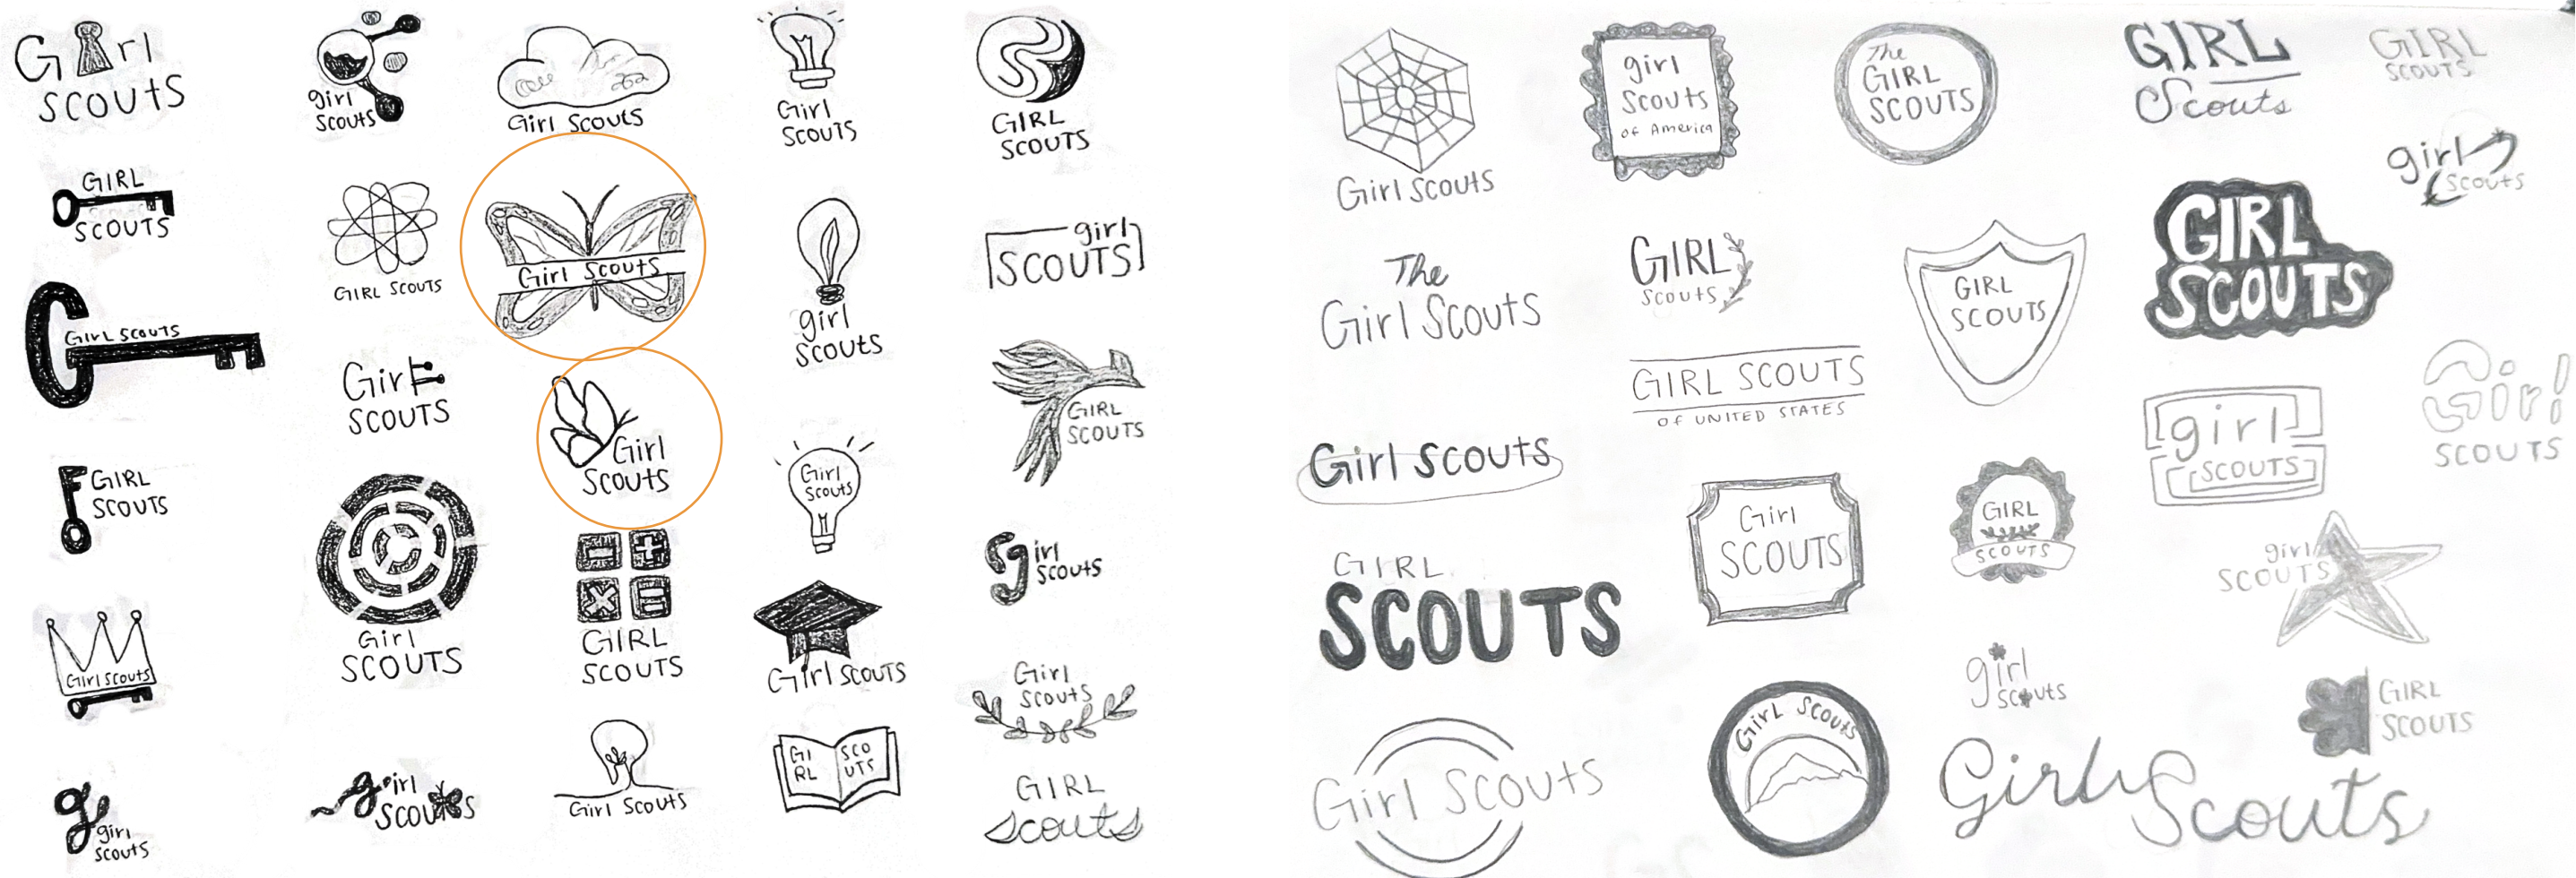 Girl
SCOUTS
GIRL
SCOUTS
GIRL SCOUTS
GIRL
SCOUTS
Girl Scouts
g
girl
scouts
girl
scouts
GIRL SCOUTS
Girl
SCOUTS
Girl
SCOUTS
girl
SCOUTS
Girl Scouts
Girl Scouts
Girl
Scouts
GIRL
SCOUTS
Girl Scouts
Girl
SCOUTS
girl
scouts
Girl
Scouts
Girl SCOUTS
GI
RL
SCO
UTS
GIRL
SCOUTS
girl
SCOUTS
GIRL
SCOUTS
girl
scouts
Girl
Scouts
GIRL
scouts
Girl Scouts
The
Girl Scouts
Girl Scouts
GIRL
SCOUTS
Girl Scouts
girl
Scouts
of America
GIRL
Scouts
GIRL SCOUTS
OF UNITED STATES
Girl
SCOUTS
Girl Scouts
The
GIRL
SCOUTS
GIRL
SCOUTS
GIRL
SCOUTS
girl
scouts
Girl
Scouts
GIRL
Scouts
GIRL
SCOUTS
girl
SCOUTS
girl
SCOUTS
GIRL
SCOUTS
GIRL
SCOUTS
girl
scouts
Girl
SCOUTS